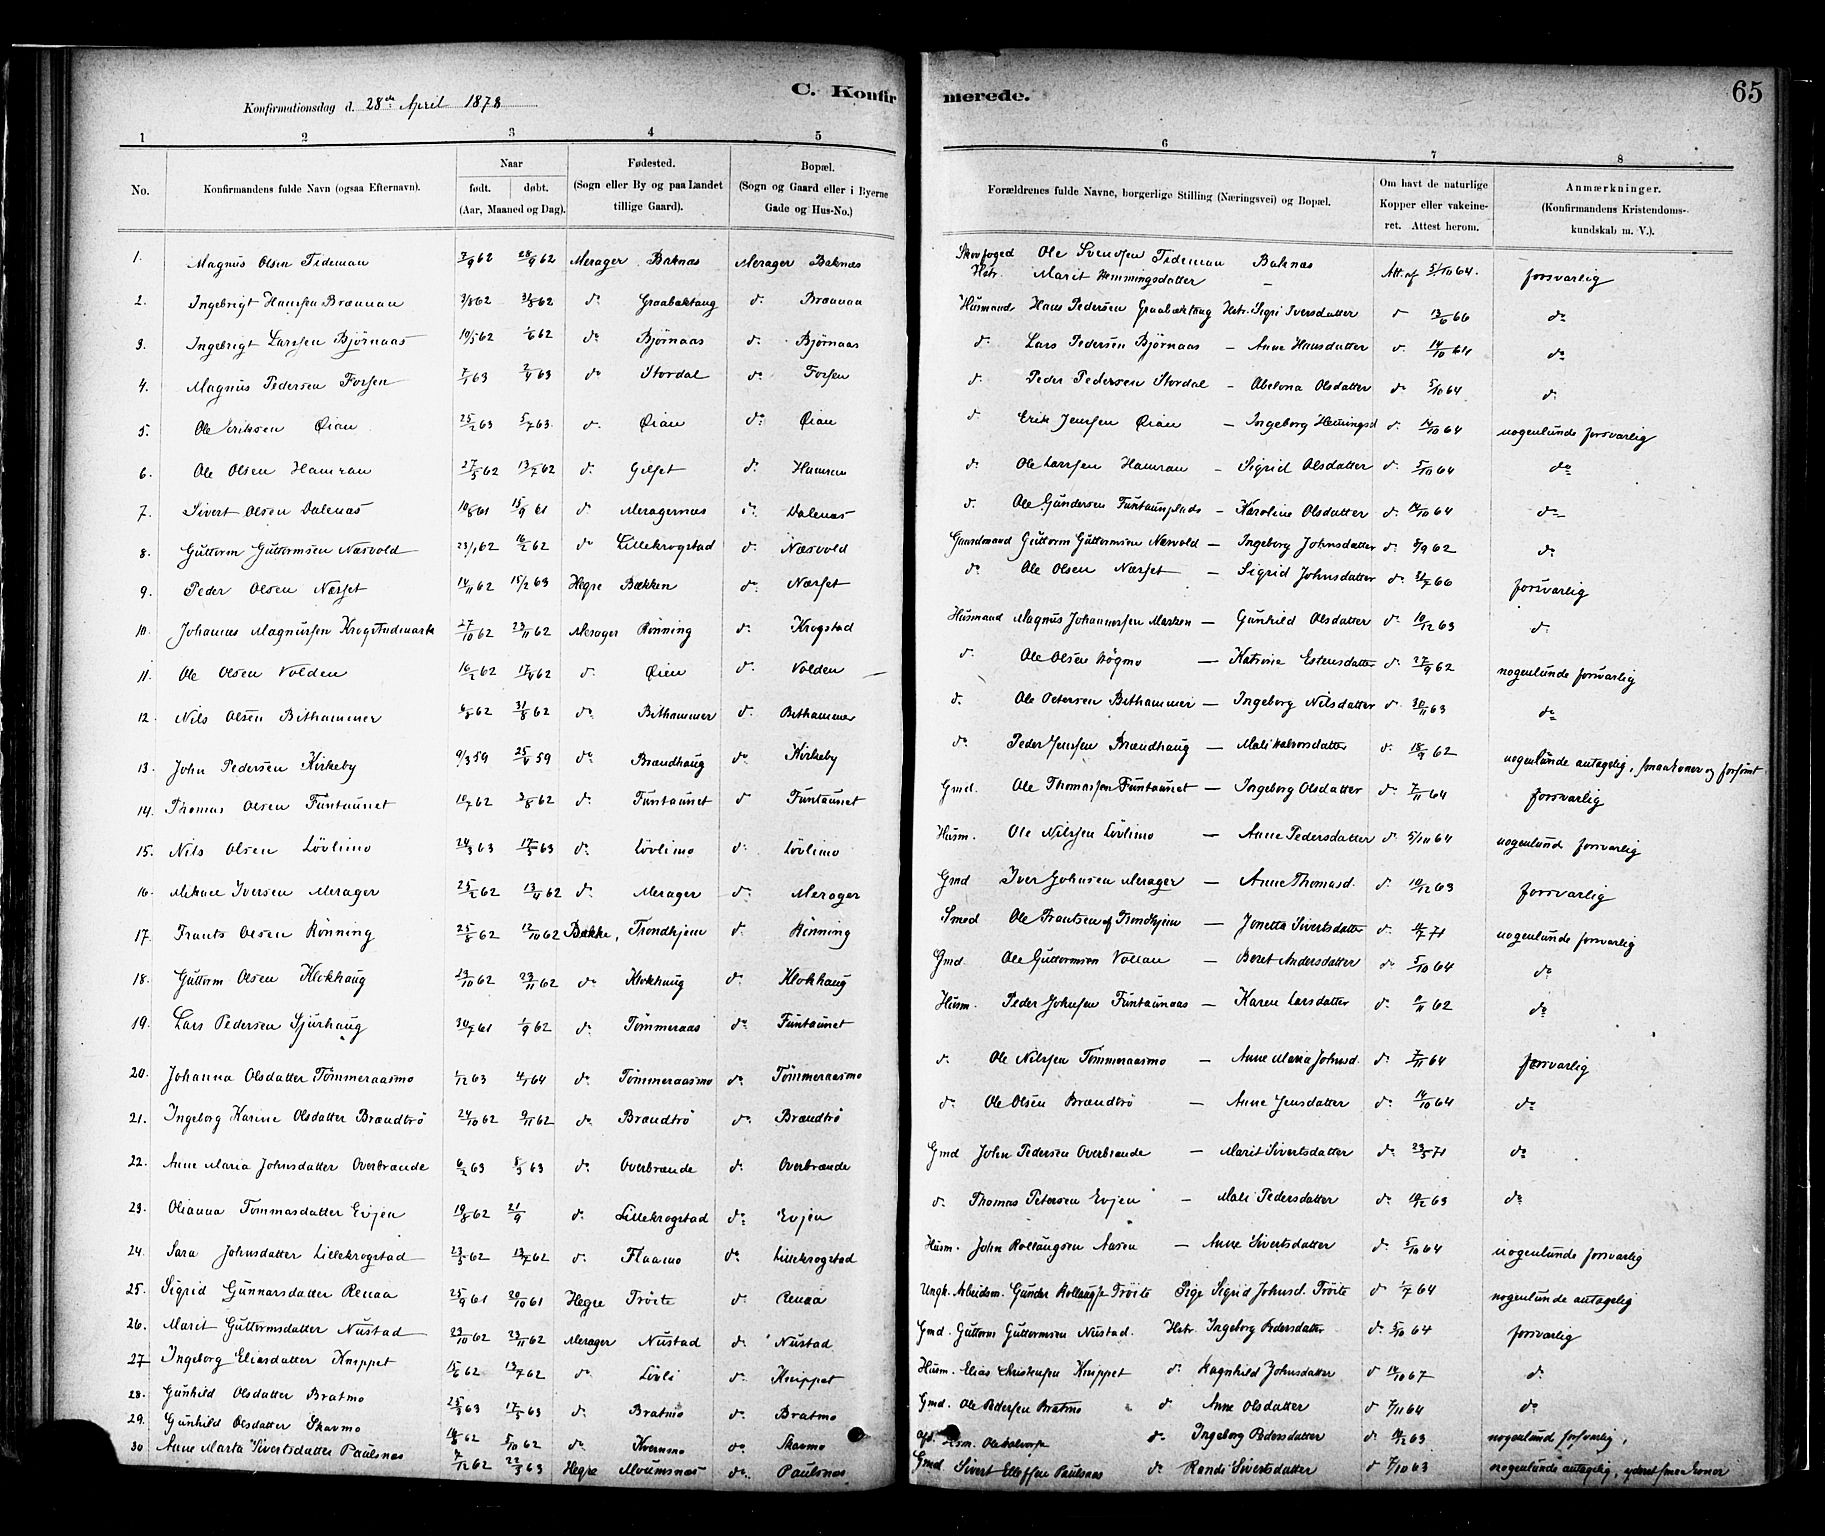 C. Konfirmerede.
65
Konfirmationsdag d. 28de April 1878
1 2 3 4 5 6 7 8
No. Konfirmandens fulde Navn (ogsaa Efternavn). Naar født. døbt. (Aar, Maaned og Dag). Fødested. (Sogn eller By og paa Landet tillige Gaard). Bopæl. (Sogn og Gaard eller i Byerne Gade og Hus-No.) Forældrenes fulde Navne, borgerlige Stilling (Næringsvei) og Bopæl. Om havt de naturlige Kopper eller vakcineret. Attest herom. Anmærkninger. (Konfirmandens Kristendomskundskab m. V.).
1. Magnus Olsen Tideman 7/9 62 28/9 62 Merager Baknæs Merager Baknæs Skovfoged Ole Svendsen Tideman Baknæs Hstr. Marit Hemmingsdatter – Att. af 5/10 64. forsvarlig
2. Ingebrigt Hansen Brænnan 3/8 62 31/8 62 do Graabæktang do Brænnaa Husmand Hans Pedersen Graabæktang Hstr. Sigri Iversdatter do 13/6 66 do
3. Ingebrigt Larssen Bjørnaas 10/5 62 1/6 62 do Bjørnaas do Bjørnaas do Lars Pedersen Bjørnaas – Anne Hansdatter do 14/10 64 do
4. Magnus Pedersen Forsen 7/1 63 2/4 63 do Stordal do Forsen do Peder Pedersen Stordal – Abelona Olsdatter do 5/10 64 do
5. Ole Eriksen Øian 25/2 63 5/7 63 do Øian do Øian do Erik Jenssen Øian – Ingeborg Hemingsd do 14/10 64 nogenlunde forsvarlig
6. Ole Olsen Hamran 27/5 62 13/7 62 do Gilset do Hamran do Ole Larssen Hamran – Sigrid Olsdatter do 5/10 64 do
7. Sivert Olsen Dalenæs 10/8 61 15/9 61 do Meragernæs do Dalenæs do Ole Gundersen Funtaunplads – Karoline Olsdatter do 14/10 64 do
8. Guttorm Guttormsen Næsvold 23/1 62 16/2 62 do Lillekrogstad do Næsvold Gaardmand Guttorm Guttormsen Næsvold – Ingeborg Johnsdatter do 8/9 62 do
9. Peder Olsen Nærset 14/11 62 15/2 63 Hegre Bækken do Nærset do Ole Olsen Nærset – Sigrid Johnsdatter do 31/7 66 forsvarlig
10. Johannes Magnussen Krogstadmark 27/10 62 23/11 62 Merager Rønning do Krogstad Husmand Magnus Johannessen Marken – Gunhild Olsdatter do 10/12 63 do
11. Ole Olsen Volden 16/2 62 17/4 62 do Øien do Volden do Ole Olsen Høgmo – Katrine Estensdatter do 27/9 62 nogenlunde forsvarlig
12. Nils Olsen Bithammer 6/8 62 31/8 62 do Bithammer do Bithammer do Ole Petersen Bithammer – Ingeborg Nilsdatter do 30/11 63 do
13. John Pedersen Kirkeby 9/3 59 25/4 59 do Brændhaug do Kirkeby do Peder Jenssen Brændhaug – Mali Halvorsdatter do 18/9 62 nogenlunde antagelig, smaa evner og forsømt
14. Thomas Olsen Funtaunet 10/7 62 3/8 62 do Funtaunet do Funtaunet Gmd. Ole Thomassen Funtaunet – Ingeborg Olsdatter do 7/11 64 forsvarlig
15. Nils Olsen Lövlimo 24/3 63 17/5 63 do Lövlimo do Lövlimo Husm. Ole Nilssen Lövlimo – Anne Pedersdatter do 5/10 64 nogenlund forsvarlig
16. Mikael Iversen Merager 25/2 62 13/4 62 do Merager do Merager Gmd Iver Johnsen Merager – Anne Thomasd. do 10/12 63 forsvarlig
17. Frants Olsen Rönning 25/8 62 12/10 62 Bakke, Trondhjem do Rönning Smed Ole Frantsen af Trondhjem – Jonetta Sivertsdatter do 71 nogenlunde forsvarlig
18. Guttorm Olsen Klokhaug 13/10 62 23/11 62 do Klokhaug do Klokhaug Gmd. Ole Guttormsen Vollan – Beret Andersdatter do 5/10 64 do
19. Lars Pedersen Sjurhaug 30/7 61 1/9 62 do Tömmeraas do Funtaunet Husm. Peder Johnsen Funtaunaas – Karen Larsdatter do 2/11 62 do
20. Johanna Olsdatter Tömmeraasmo 1/12 63 4/1 64 do Tömmeraasmo do Tömmeraasmo do Ole Nilssen Tömmeraasmo – Anne Maria Johnsd. do 7/11 64 forsvarlig
21. Ingeborg Karine Olsdatter Brændtrö 24/10 62 9/11 62 do Brændtrö do Brændtrö do Ole Olsen Brændtrö – Anne Jensdatter do 14/10 64 do
22. Anne Maria Johnsdatter Overbrænde 6/2 63 8/3 63 do Overbrænde do Overbrænde Gmd John Pedersen Overbrænde – Marit Sivertsdatter do 23/5 71 do
23. Olianna Tommasdatter Evjen 19/8 62 21/9 do Lillekrogstad do Evjen do Thomas Petersen Evjen – Mali Pedersdatter do 10/12 63 do
24. Sara Johnsdatter Lillekrogstad 23/5 62 13/7 62 do Flaamo do Lillekrogstad Husm. John Rollaugsen Aasen – Anne Sivertsdatter do 5/10 64 nogenlunde forsvarlig
25. Sigrid Gunnarsdatter Renaa 25/9 61 20/10 61 Hegre Tröite do Renaa Ungk. Arbeidsm. Gunder Rollaugs. Tröite Pige Sigrid Johnsd. Tröite do 1/7 64 nogenlunde antagelig
26. Marit Guttormsdatter Nustad 23/10 62 23/11 62 Merager Nustad do Nustad Gmd. Guttorm Guttormsen Nustad. Hstr. Ingeborg Pedersdatter do 5/10 64 forsvarlig
27. Ingeborg Eliasdatter Knippet 15/6 62 13/7 62 do Lövli do Knippet Husm. Elias Knippet do Ragnhild Johnsdatter do 14/10 67 do
28. Gunhild Olsdatter Bratmo 25/3 63 17/5 63 do Bratmo do Bratmo Gmd. Ole Pedersen Bratmo do Anne Olsdatter do 7/11 64 do
29. Gunhild Olsdatter Skavmo 62 5/10 62 do Kvernmo do Skavmo Ole Halvors. do Ingeborg Pedersdatter do 63 nogenlund forsvarlig,
30 Anne Marta Sivertsdatter Paulsnæs 7/12 62 22/3 63 Hegre do Paulsnæs Gmd Sivert Ellefsen Paulsnæs do Randi Sivertsdatter do 7/10 63 nogenlunde antagelig, yderst smaa evner